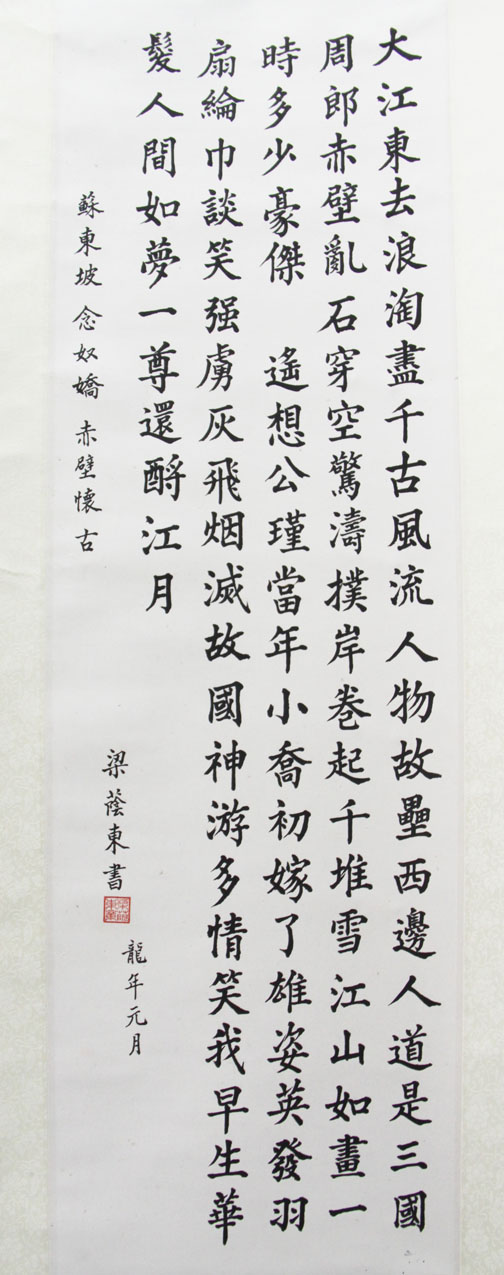 大江東去浪淘盡千古風流人物故壘西邊人道是三國
周郎赤壁亂石穿空驚濤撲岸卷起千堆雪江山如畫一
時多少豪傑 遙想公瑾當年小喬初嫁了雄姿英發羽
扇綸巾談笑强虜灰飛烟滅故國神游多情笑我早生華
髮人間如夢一尊還酹江月
蘇東坡 念奴嬌 赤壁懷古
梁蔭東書
龍年元月